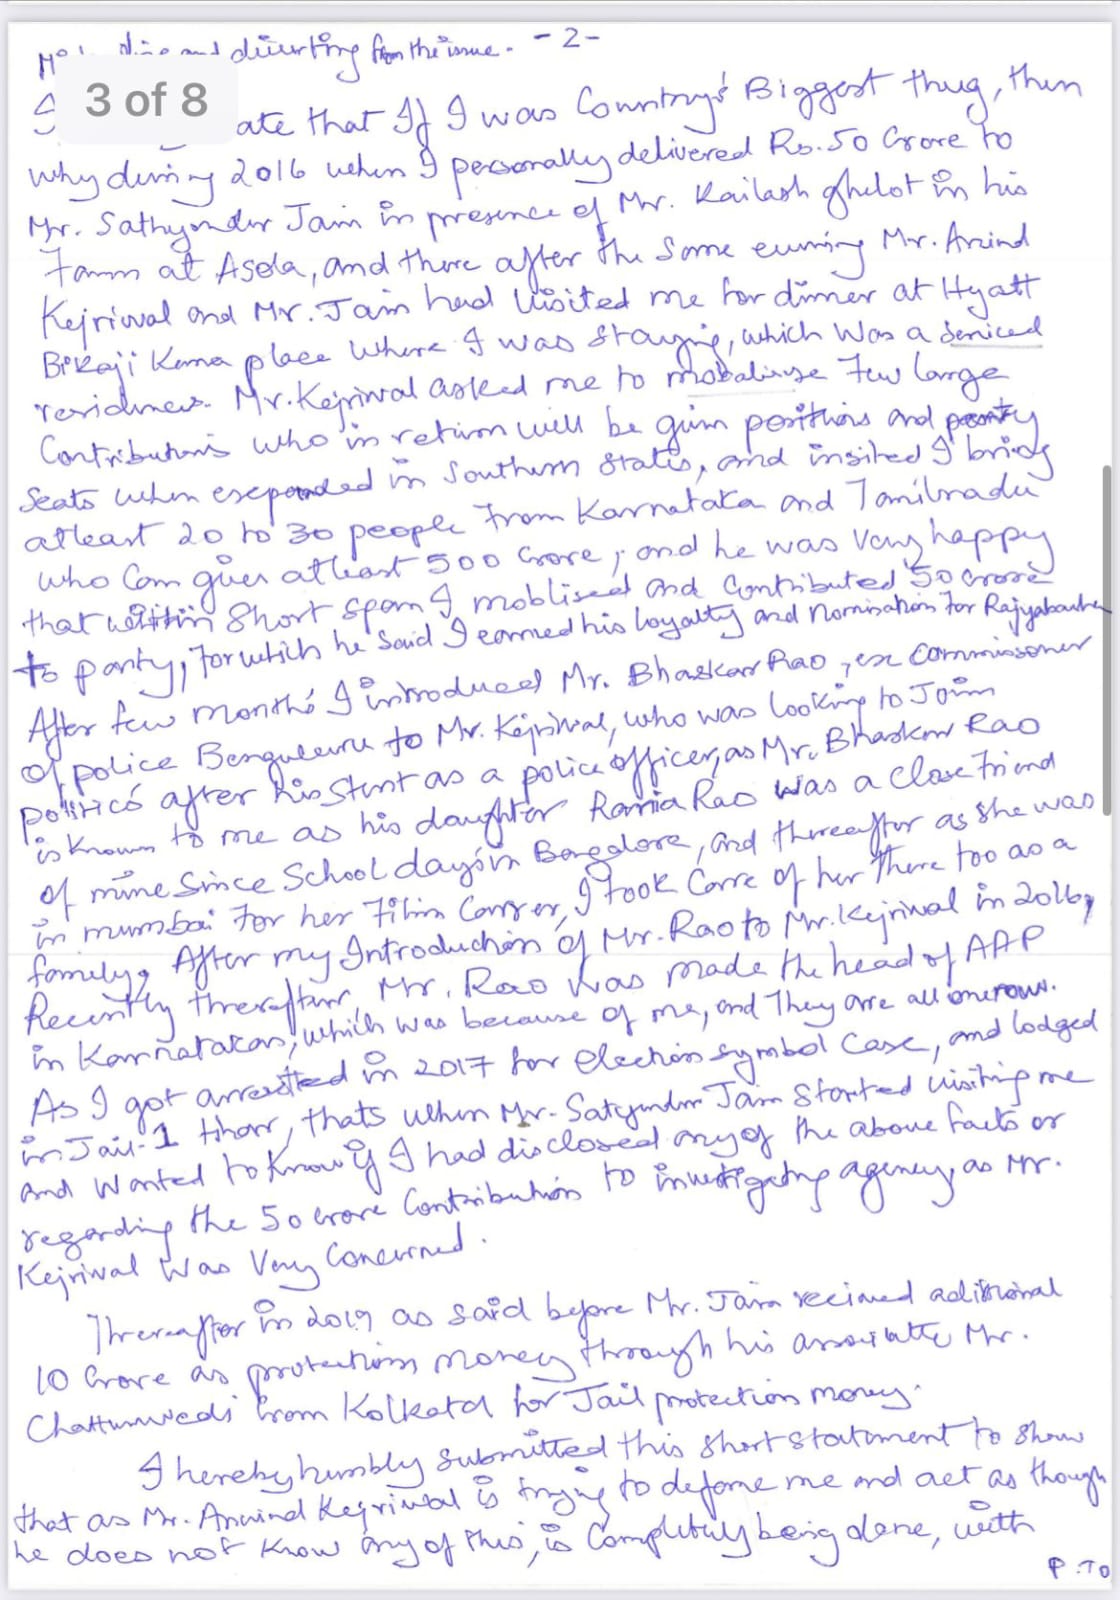 and diverting from the issue. - 2 -
3 of 8
ate that If I was Country's Biggest thug, then
why during 2016 when I personally delivered Rs. 50 Crore to
Mr. Sathyender Jain in presence of Mr. Kailash ghelot in his
Farm at Asola, and there after the same evening Mr. Arvind
Kejriwal and Mr. Jain had visited me for dinner at Hyatt
Bikaji Kama place where I was staying, which was a serviced
residences. Mr. Kejriwal asked me to mobalise Few large
Contributions who in return will be given positions and party
Seats when expanded in Southern states, and insited I bring
atleast 20 to 30 people From Karnataka and Tamilnadu
who can give atleast 500 crore, and he was very happy
that within Short span I moblised and contributed 50 crore
to party, for which he said I earned his loyalty and Nomination for Rajyasabha
After few months I introduced Mr. Bhaskar Rao, ex Commissoner
Of police Bengaluru to Mr. Kejriwal, who was looking to Join
politics after his stint as a police officer, as Mr. Bhaskar Rao
is known to me as his daughter Rania Rao was a close friend
of mine Since School days in Bangalore, and thereafter as she was
in mumbai For her Film Carrer, I took Care of her There too as a
family, After my Introduction of Mr. Rao to Mr. Kejriwal in 2016,
Recently thereafter, Mr. Rao was made the head of AAP
in Karnataka, which was because of me, and They are all
As I got arrested in 2017 for election symbol Case, and lodged
in Jail-1 tihar, thats when Mr. Satyendar Jain started visiting me
and wanted to know if I had disclosed any of the above facts or
regarding the 50 crore Contribution to investigating agency, as Mr.
Kejriwal was Very Concerned.
Thereafter in 2019 as said before Mr. Jain recieved additional
10 Crore as protection money through his associate Mr.
Chaturvedi from Kolkata for Jail protection money.
I hereby humbly submitted this short statement to show
that as Mr. Arvind Kejriwal is trying to defame me and act as though
he does not know any of this, is Completely being done, with
P.T.O